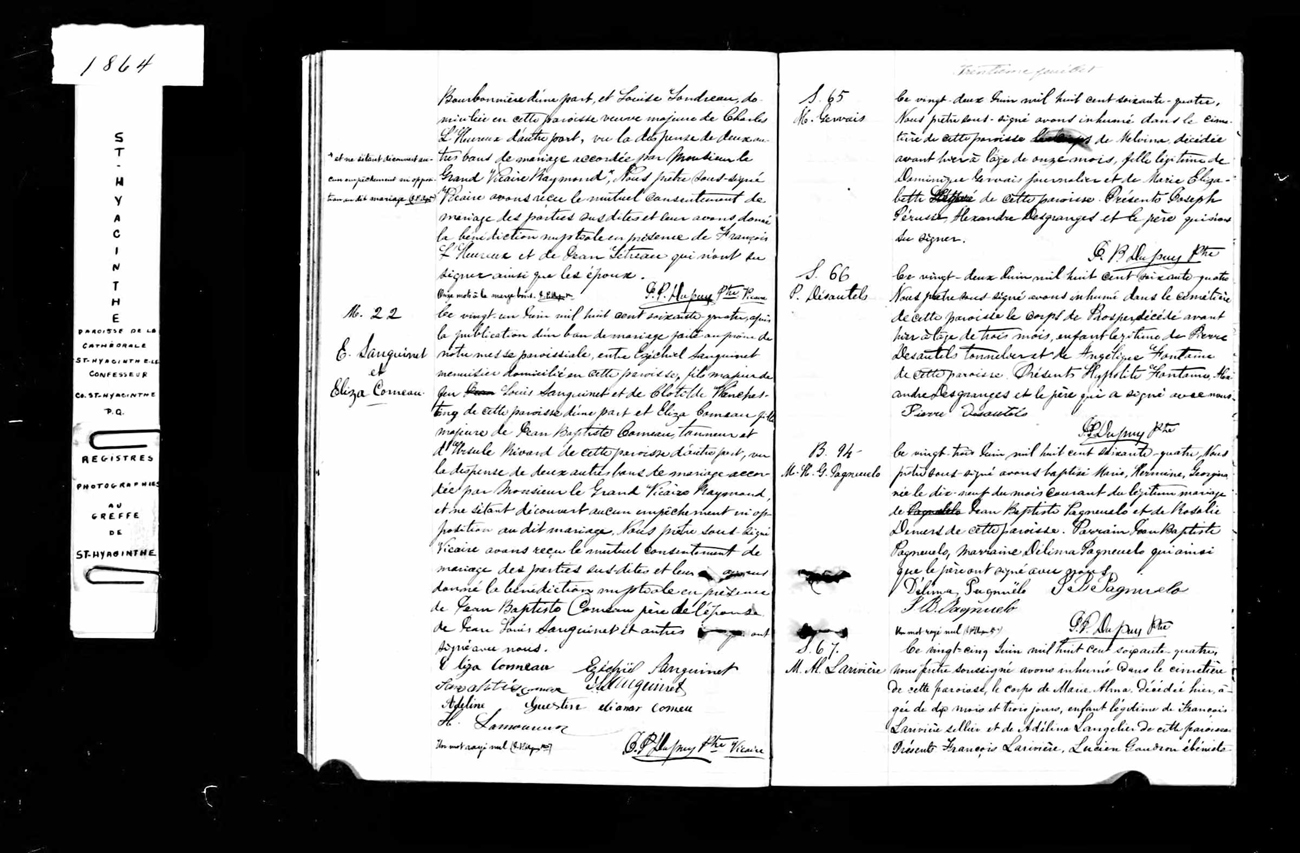 1864
ST-HYACINTHE
PAROISSE DE LA
CATHÉDRALE
ST-HYACINTHE-LE-
CONFESSEUR
CO. ST-HYACINTHE
P.Q.
REGISTRES
PHOTOGRAPHIÉS
AU
GREFFE
DE
ST-HYACINTHE
Bourbonnière d'une part, et Louise Fondreau, do-
miciliée en cette paroisse veuve majeure de Charles
L'Heureux d'autre part, vu la dispense de deux au-
tres bans de mariage accordée par Monsieur le
Grand Vicaire Raymond*, Nous prêtre sous-signé
Vicaire avons reçu le mutuel consentement de
mariage des parties susdites et leur avons donné
la bénédiction nuptiale en présence de François
L'Heureux et de Jean qui n'ont su
signer ainsi que les époux.
* et ne s'étant découvert au-
cun empêchement en oppo-
sition au dit mariage
Onze mots à la marge bons.
Dupuy Ptre Vicaire
M. 22
E. Sanguinet
et
Eliza Comeau
Ce vingt un Juin mil huit cent soixante quatre, après
la publication d'un ban de mariage faite au prône de
notre messe paroissiale, entre Ezéchiel Sanguinet
menuisier domicilié en cette paroisse, fils majeur de
feu Louis Sanguinet et de Clotilde
de cette paroisse d'une part et Eliza Comeau fille
majeure de Jean Baptiste Comeau, tanneur et
d'Ursule Rivard de cette paroisse d'autre part, vu
la dispense de deux autres bans de mariage accor-
dée par Monsieur le Grand Vicaire Raymond,
et ne s'étant découvert aucun empêchement en op-
position au dit mariage, Nous prêtre sous-signé
Vicaire avons reçu le mutuel consentement de
mariage des parties susdites et leur avons
donné la bénédiction nuptiale en présence
de Jean Baptiste Comeau père de l'épouse
de Jean Louis Sanguinet et autres ont
signé avec nous.
Eliza Comeau Ezéchiel Sanguinet
Comeau Sanguinet
Adéline elianor Comeau
H. Lamoureux
Un mot rayé nul
Dupuy Ptre Vicaire
Trentième feuillet
S. 65
M. Gervais
Ce vingt-deux Juin mil huit cent soixante-quatre,
Nous prêtre sous-signé avons inhumé dans le cime-
tière de cette paroisse le corps de Melvina, décédée
avant hier à l'âge de onze mois, fille légitime de
Dominique Gervais journalier et de Marie Eliza-
beth de cette paroisse. Présents Joseph
Pérusse, Alexandre Desgranges et le père qui n'ont
su signer.
Dupuy Ptre
S. 66
P. Désautels
Ce vingt-deux Juin mil huit cent soixante-quatre
Nous prêtre sous-signé avons inhumé dans le cimetière
de cette paroisse le corps de Prosper, décédé avant
hier à l'âge de trois mois, enfant légitime de Pierre
Désautels tonnelier et de Angélique Fontaine
de cette paroisse. Présents Hypolite Fontaine, Alex-
andre Desgranges et le père qui a signé avec nous.
Pierre Désautels
Dupuy Ptre
B. 94
M. H. G. Pagnuelo
Ce vingt-trois Juin, mil huit cent soixante-quatre, Nous
prêtre sous-signé avons baptisé Marie, Hermine, Georgina
née le dix-neuf du mois courant du légitime mariage
de Pagnuelo Jean Baptiste Pagnuelo et de Rosalie
Demers de cette paroisse. Parrain Jean Baptiste
Pagnuelo, marraine Délima Pagnuelo qui ainsi
que le père ont signé avec nous.
Délima Pagnuëlo J. B. Pagnuelo
J. B. Pagnuelo
Un mot rayé nul
Dupuy Ptre
S. 67.
M. Al. Larivière
Ce vingt-cinq Juin mil huit cent soixante-quatre,
nous prêtre soussigné avons inhumé dans le cimetière
de cette paroisse, le corps de Marie Alma. Décédée hier, â-
gée de dix mois et trois jours, enfant légitime de François
Larivière sellier et de Adélina Langelier de cette paroisse
Présents François Larivière, Lucien Gaudron ébéniste